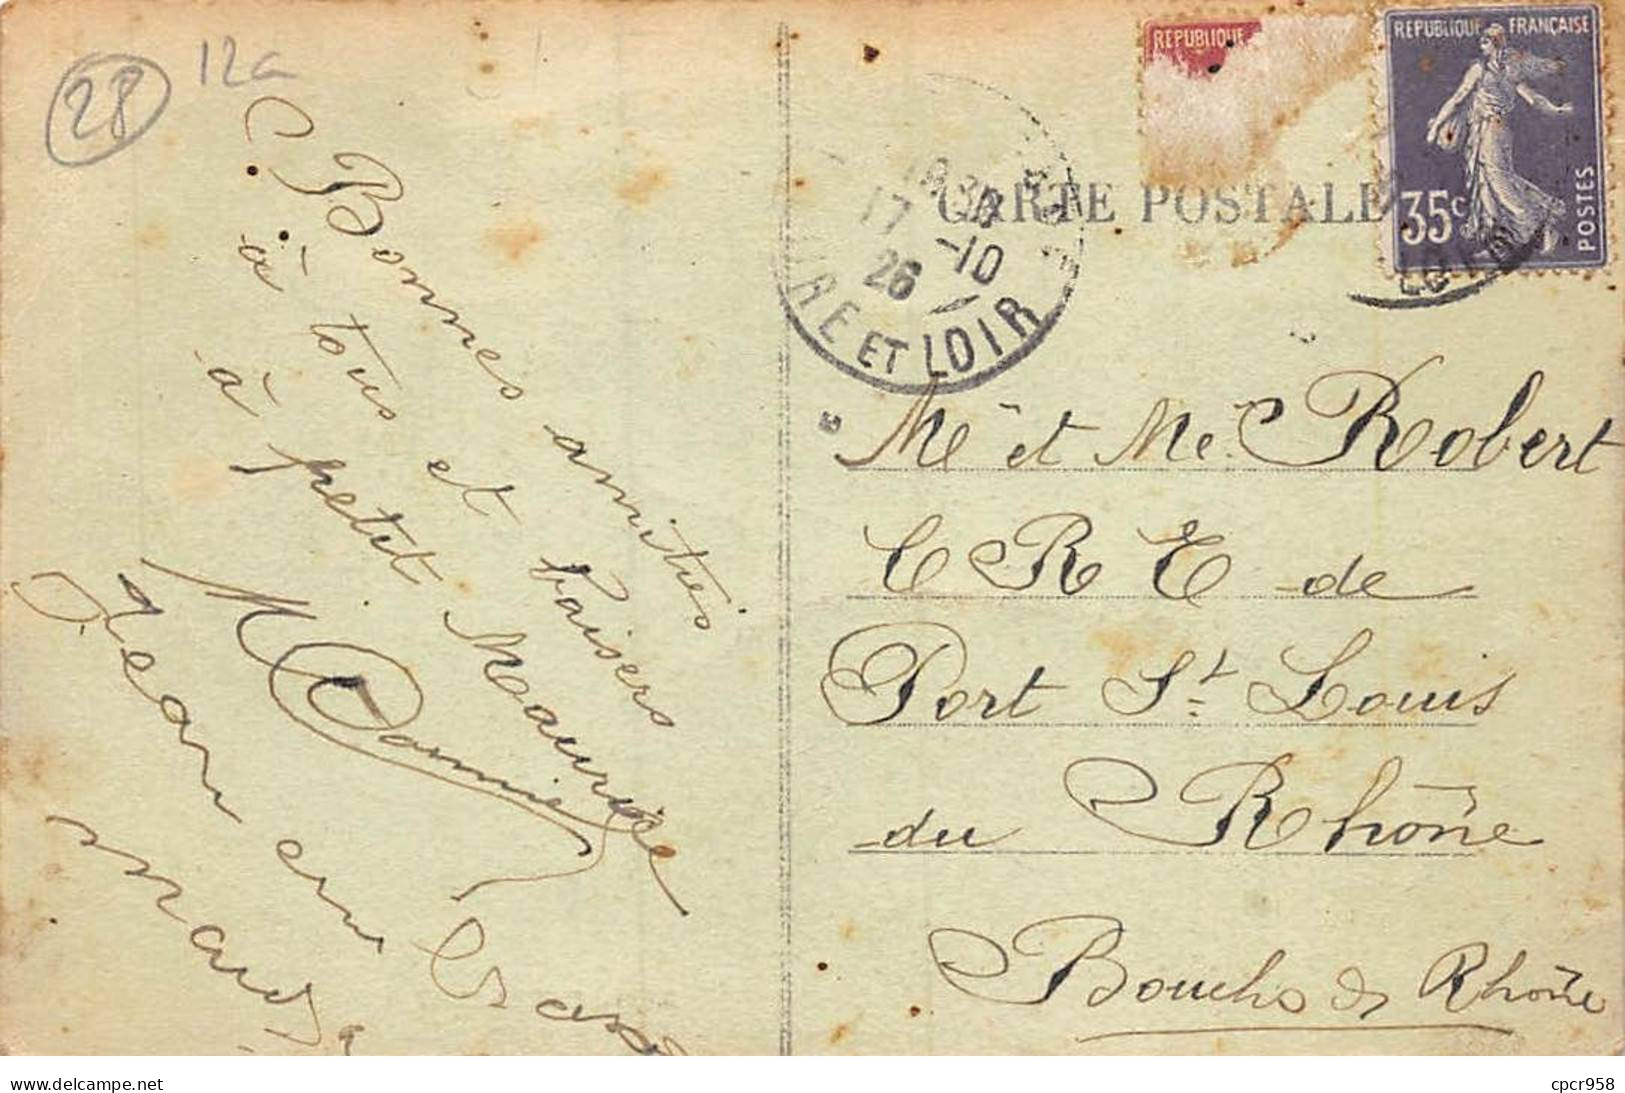 28
12a
Bonnes amitiés
à tous et baisers
à petit Maurice
M
Jean
CARTE POSTALE
REPUBLIQUE
REPUBLIQUE FRANÇAISE
35c
POSTES
17 -10
26
EURE ET LOIR
Me et Me Robert
C R E de
Port St Louis
du Rhône
Bouches du Rhône
cpcr958
delcampe.net